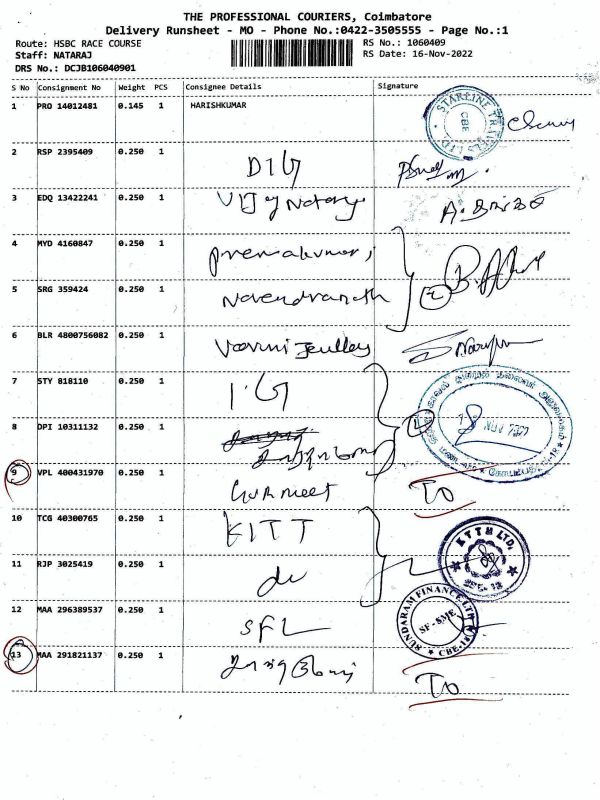 THE PROFESSIONAL COURIERS, Coimbatore
Delivery Runsheet - MO - Phone No.:0422-3505555 - Page No.:1
Route: HSBC RACE COURSE
RS No.: 1060409
Staff: NATARAJ
RS Date: 16-Nov-2022
DRS No.: DCJB106040901
S No Consignment No Weight PCS Consignee Details Signature
1 PRO 14012481 0.145 1 HARISHKUMAR
STARLINE TRAVELS LTD CBE
2 RSP 2395409 0.250 1 DIG
3 EDQ 13422241 0.250 1
4 MYD 4160847 0.250 1 Premakumar,
5 SRG 359424 0.250 1 Narendranath
6 BLR 4800756082 0.250 1
7 STY 818110 0.250 1 I.G
8 DPI 10311132 0.250 1
18 NOV 2022
9 VPL 400431970 0.250 1 Gurmeet TO
10 TCG 40300765 0.250 1 KITT
11 RJP 3025419 0.250 1 do
12 MAA 296389537 0.250 1 SFL
SUNDARAM FINANCE LTD SF-SME CBE
13 MAA 291821137 0.250 1 TO